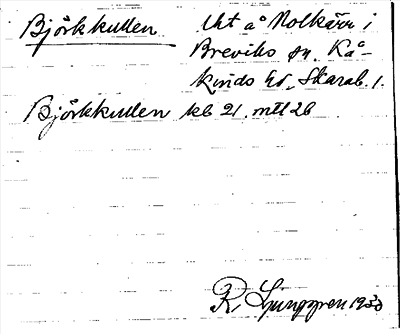 Björkkullen Uht å Molkärr i
Breviks sn. Kå-
kinds hd, Skarab. l.
Björkkullen kb 21, mtl 26
R Ljunggren 1930